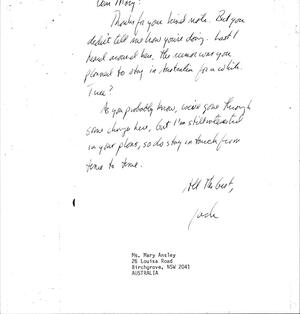 Dear Mary:
Thanks for your kind note. But you
didn't tell me how you're doing. Last I
heard around here, the rumor was you
planned to stay in Australia for a while.
True?
As you probably know, we've gone through
some change here, but I'm still interested
in your plans, so do stay in touch from
time to time.
All the best,
Ms. Mary Ansley
26 Louisa Road
Birchgrove, NSW 2041
AUSTRALIA